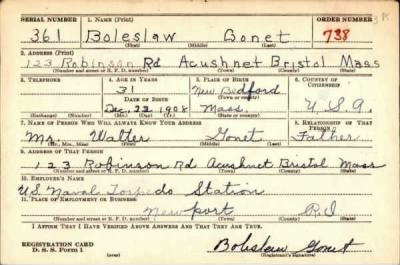 SERIAL NUMBER 1. NAME (Print) ORDER NUMBER
361 Boleslaw Gonet 738
(First) (Middle) (Last)
2. ADDRESS (Print)
123 Robinson Rd Acushnet Bristol Mass
(Number and street or R. F. D. number) (Town) (County) (State)
3. TELEPHONE 4. AGE IN YEARS 5. PLACE OF BIRTH 6. COUNTRY OF CITIZENSHIP
31 New Bedford
DATE OF BIRTH (Town or county)
Dec. 23 1908 Mass. U.S.A.
(Exchange) (Number) (Mo.) (Day) (Yr.) (State or country)
7. NAME OF PERSON WHO WILL ALWAYS KNOW YOUR ADDRESS 8. RELATIONSHIP OF THAT PERSON
Mr. Walter Gonet Father
(Mr., Mrs., Miss) (First) (Middle) (Last)
9. ADDRESS OF THAT PERSON
123 Robinson Rd Acushnet Bristol Mass
(Number and street or R. F. D. number) (Town) (County) (State)
10. EMPLOYER'S NAME
U.S. Naval Torpedo Station
11. PLACE OF EMPLOYMENT OR BUSINESS
Newport R.I
(Number and street or R. F. D. number) (Town) (County) (State)
I AFFIRM THAT I HAVE VERIFIED ABOVE ANSWERS AND THAT THEY ARE TRUE.
REGISTRATION CARD
D. S. S. Form 1 (over) Boleslaw Gonet
(Registrant's signature)